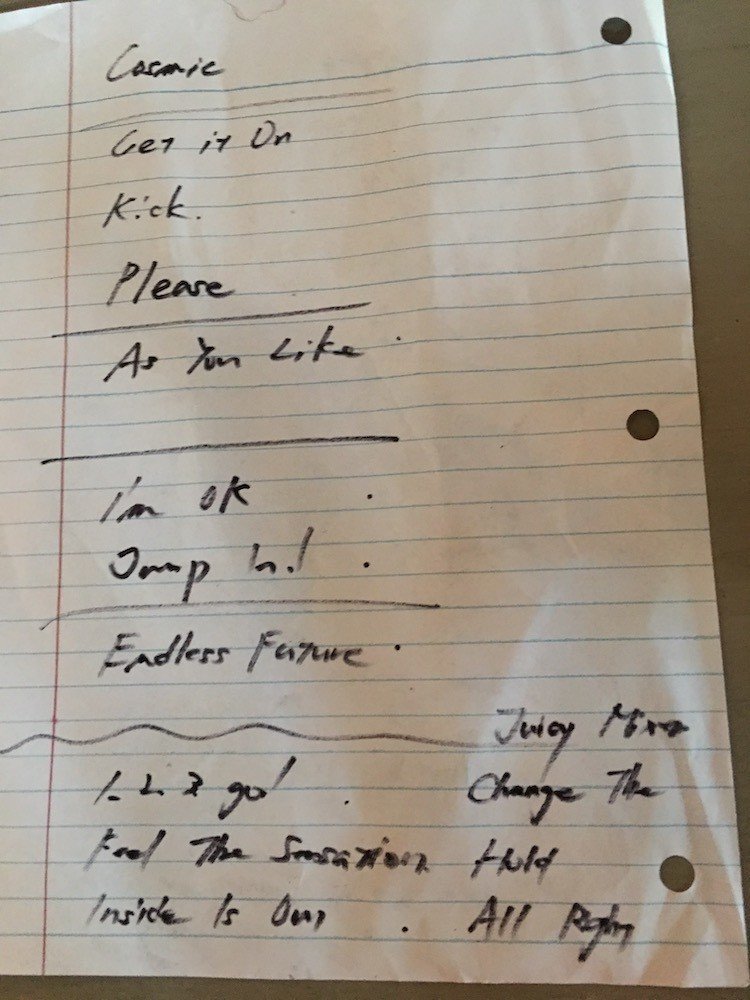 Cosmic
Get it On
Kick.
Please
As You Like
I'm OK
Jump In!
Endless Future
Juicy
1 2 3 go!
Change The
Feel The Sensation
Hold
Inside Is Out
All Right